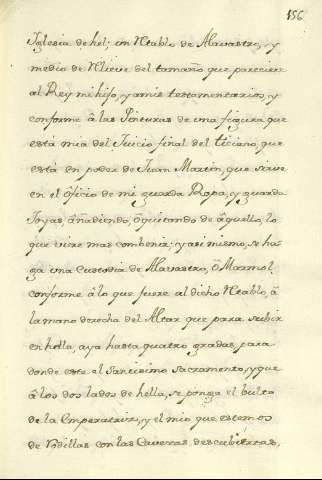 156
Iglesia de hel; un Retablo de Alavastro, y
medio de Relieve del tamaño que pareciere
al Rey mi hijo, y a mis testamentarios, y
conforme â las Pinturas de una figura que
està mia del Juicio final del ticiano, que
està en poder de Juan Martin, que sirve
en el ôficio de mi guarda Ropa, y guarda
Joyas, âñadiendo, ôquitando de âquello, lo
que viere mas combenir; y asi mismo, se ha-
ga una Custodia de Alavastro, ô Marmol,
conforme âlo que fuere al dicho Retablo, â
la mano derecha del Altar que para subir
en hella, aya hasta quatro gradas, para
donde este el Santisimo Sacramento, y que
â los dos lados de hella, se ponga el bulto
de la Emperatriz, y el mio que estemos
de Rodillas con las Caveras descubiertas,